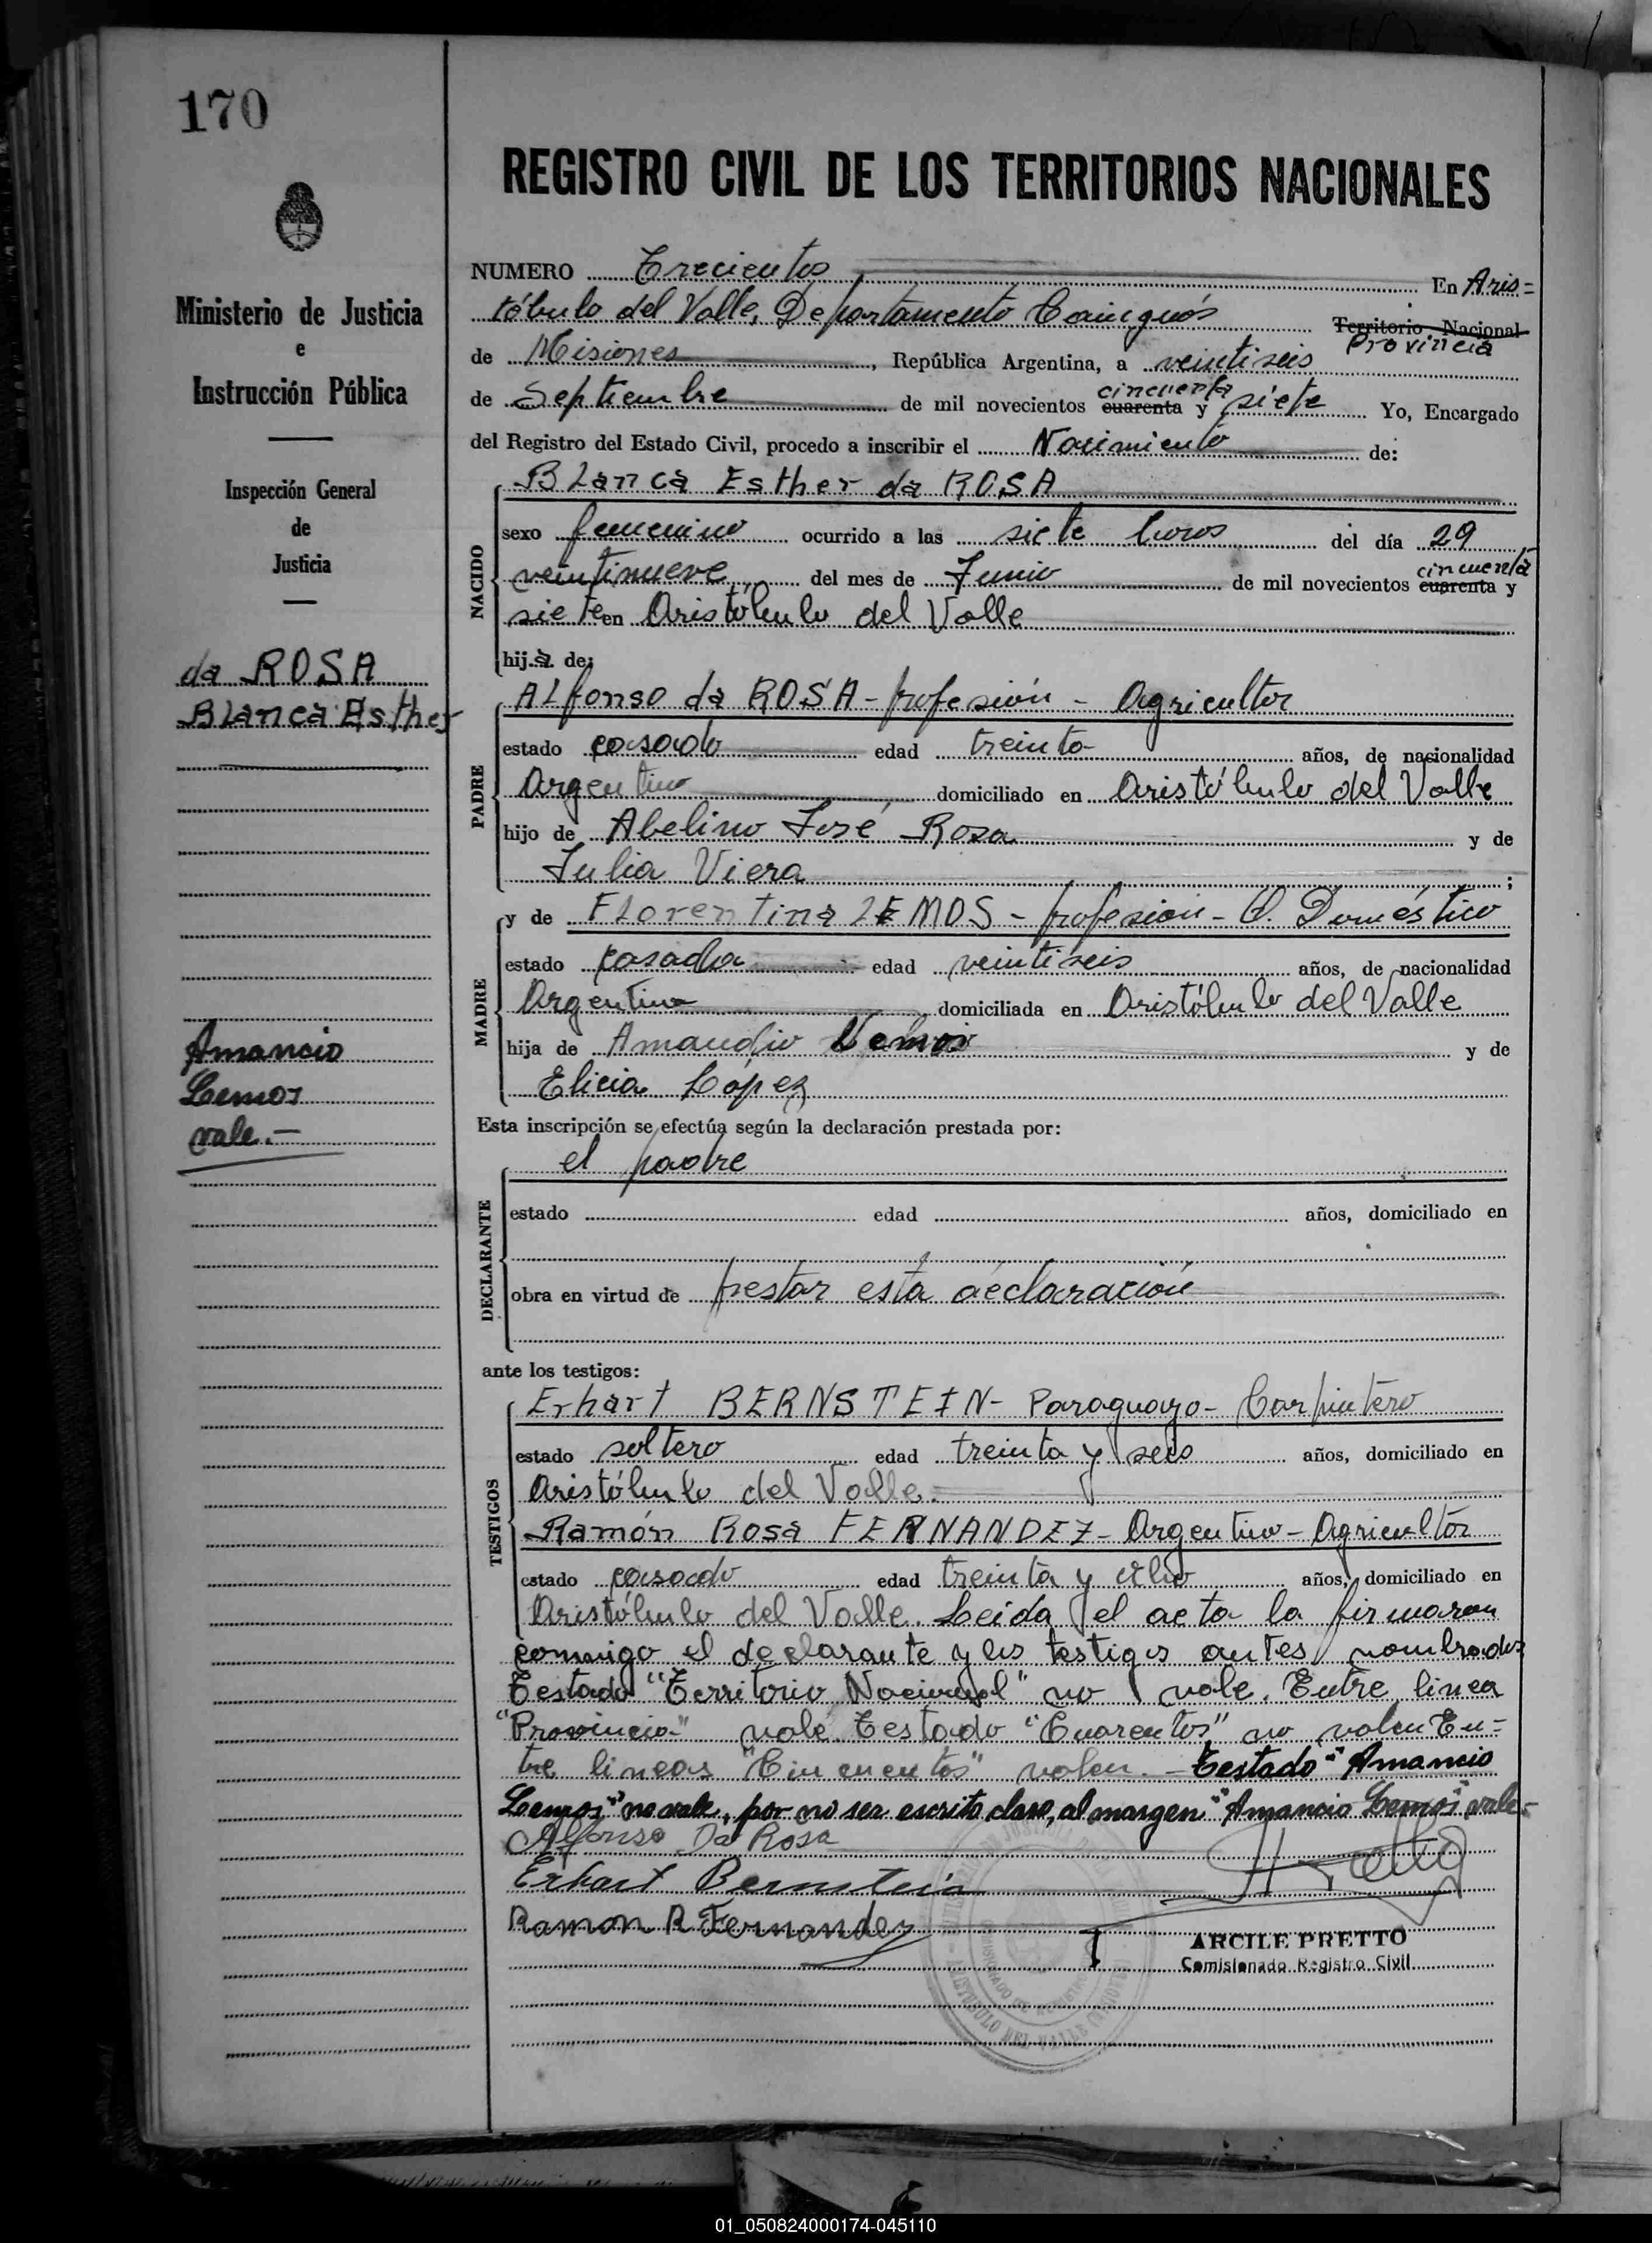 170
REGISTRO CIVIL DE LOS TERRITORIOS NACIONALES
Ministerio de Justicia
e
Instrucción Pública
Inspección General
de
Justicia
da ROSA
Blanca Esther
Amancio
Lemos
vale.-
NUMERO Trecientos En Aris=
tóbulo del Valle, Departamento Cainguás Territorio Nacional
Provincia
de Misiones, República Argentina, a veintiseis
cincuenta
de Septiembre de mil novecientos cuarenta y siete Yo, Encargado
del Registro del Estado Civil, procedo a inscribir el Nacimiento de:
Blanca Esther da ROSA
NACIDO
sexo femenino ocurrido a las siete horas del día 29
cincuenta
veintinueve del mes de Junio de mil novecientos cuarenta y
siete en Aristóbulo del Valle
hija de:
PADRE
Alfonso da ROSA - profesión - Agricultor
estado casado edad treinta años, de nacionalidad
Argentino domiciliado en Aristóbulo del Valle
hijo de Abelino José Rosa y de
Julia Viera;
MADRE
y de Florentina LEMOS - profesion - Q. Doméstico
estado casada edad veintiseis años, de nacionalidad
Argentina domiciliada en Aristóbulo del Valle
hija de Lemos y de
Elicia López
Esta inscripción se efectúa según la declaración prestada por:
DECLARANTE
el padre
estado edad años, domiciliado en
obra en virtud de prestar esta declaración
ante los testigos:
TESTIGOS
Erhart BERNSTEIN - Paraguayo - Carpintero
estado soltero edad treinta y seis años, domiciliado en
Aristóbulo del Valle.
Ramón Rosa FERNANDEZ - Argentino - Agricultor
estado casado edad treinta y ocho años, domiciliado en
Aristóbulo del Valle. Leida el acta la firmaron
conmigo el declarante y los testigos antes nombrados
Testado "Territorio Nacional" no vale. Entre linea
"Provincia" vale. Testado "Cuarentas" no valen En=
tre lineas "Cincuentas" valen. - Testado "Amancio
Lemos" no vale, por no ser escrito claro, al margen "Amancio Lemos" vale-
Alfonso Da Rosa
Erhart Bernstein
Ramon R Fernandez
ARCILE PRETTO
Comisionado Registro Civil
01_050824000174-045110